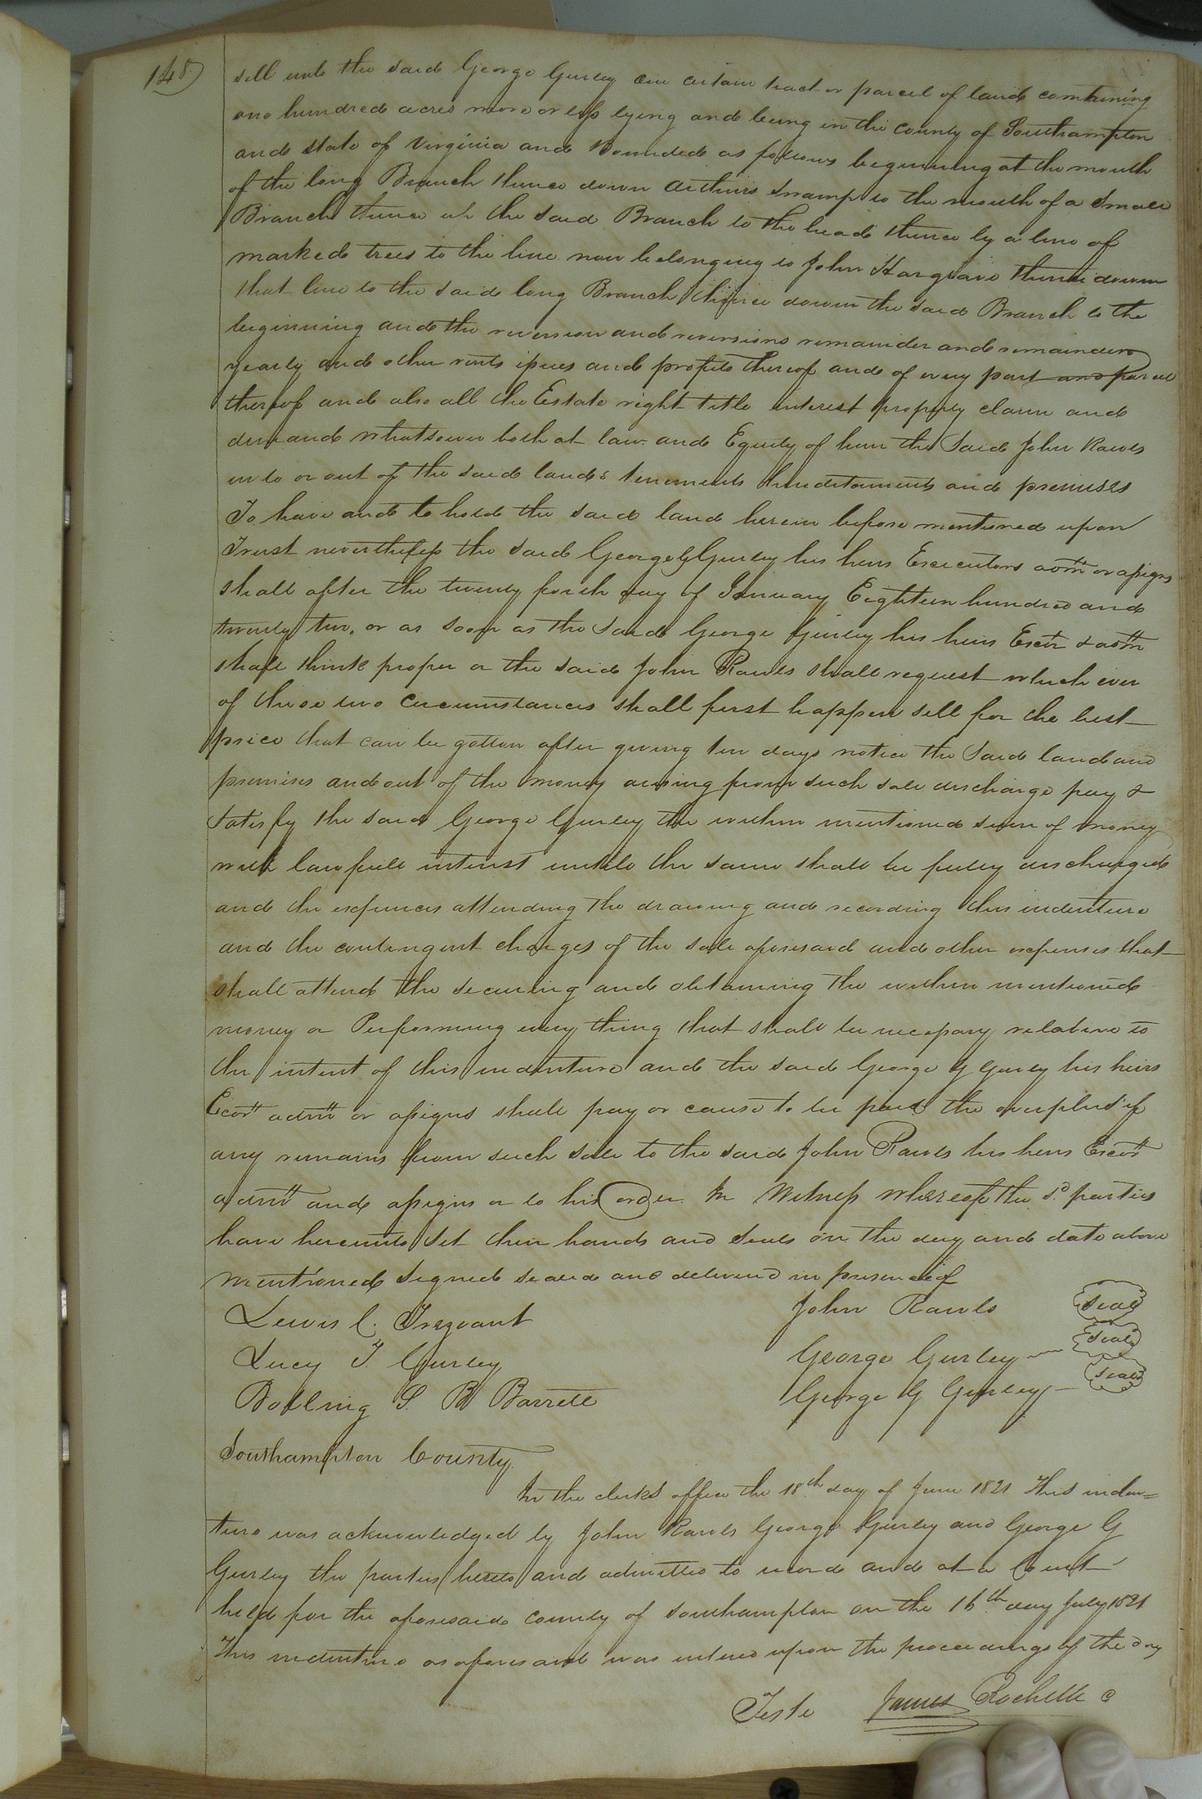 148
sell unto the said George Gurley one certain tract or parcel of land containing
one hundred acres more or less lying and being in the County of Southampton
and state of Virginia and Bounded as follows beginning at the mouth
of the long Branch thence down swamp to the mouth of a small
Branch thence up the said Branch to the head thence by a line of
marked trees to the line now belonging to John Hargrave thence down
that line to the said long Branch thence down the said Branch to the
beginning and the reversion and reversions remainder and remainders
yearly and other rents issues and profits thereof and of every part and parcel
thereof and also all the Estate right title interest property claim and
demand whatsoever both at law and Equity of him the Said John Rawls
in to or out of the said lands tenements hereditaments and premises
To have and to hold the said land herein before mentioned upon
Trust nevertheless the said George G Gurley his heirs Executors adm or assigns
shall after the twenty forth day of January Eighteen hundred and
twenty two, or as soon as the Said George Gurley his heirs Exetr & adm
shall think proper or the said John Rawls shall request which ever
of these two Circumstances shall first happen sell for the best
price that can be gotton after giving ten days notice the Said land and
premises and out of the money arising from such sale discharge pay &
Satisfy the said George Gurley the within mentioned sum of money
with lawfull interest untill the same shall be fully discharged
and the expences attending the drawing and recording this indenture
and the contingent charges of the sale aforesaid and other expenses that
shall attend the securing and obtaining the within mentioned
money or Performing every thing that shall be necessary relative to
the intent of this indenture and the said George G Gurley his heirs
Ecors admrs or assigns shall pay or cause to be paid the overplus if
any remains from such sale to the said John Rawls his heirs Execrs
admrs and assigns or to his order In Witness whereof the sd parties
have hereunto Set their hands and seals on the day and date above
mentioned Signed sealed and delivered in presence of
Lewis C. Trezvant John Rawls Seal
Lucy T. Gurley George Gurley Seal
Bolling S. B Barrett George G Gurley Seal
Southampton County
In the clerks office the 18th day of June 1821 This inden=
ture was acknowledged by John Rawls George Gurley and George G
Gurley the parties hereto and admitted to record and at a Court
held for the aforesaid county of Southampton on the 16th day July 1821
This indenture as aforesaid was entered upon the proceedings of the day
Teste James Rochelle C